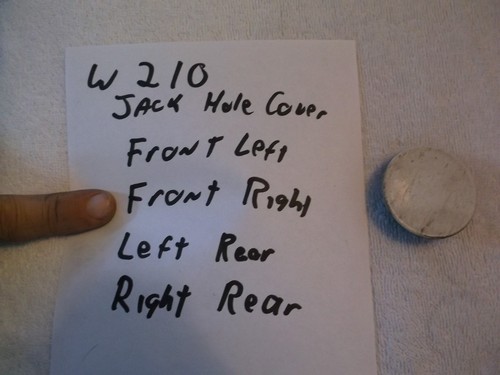 W210
JACK Hole Cover
Front Left
Front Right
Left Rear
Right Rear